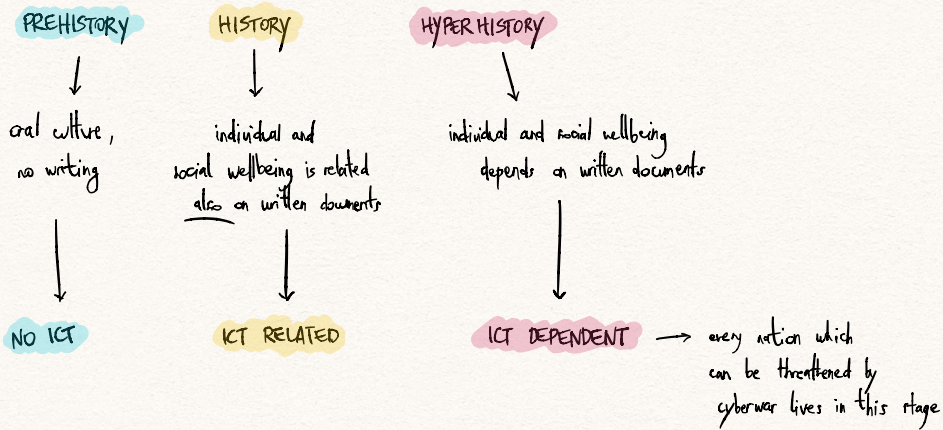 PREHISTORY
oral culture,
no writing
NO ICT
HISTORY
individual and
social wellbeing is related
also on written documents
ICT RELATED
HYPERHISTORY
individual and social wellbeing
depends on written documents
ICT DEPENDENT
every nation which
can be threatened by
cyberwar lives in this stage